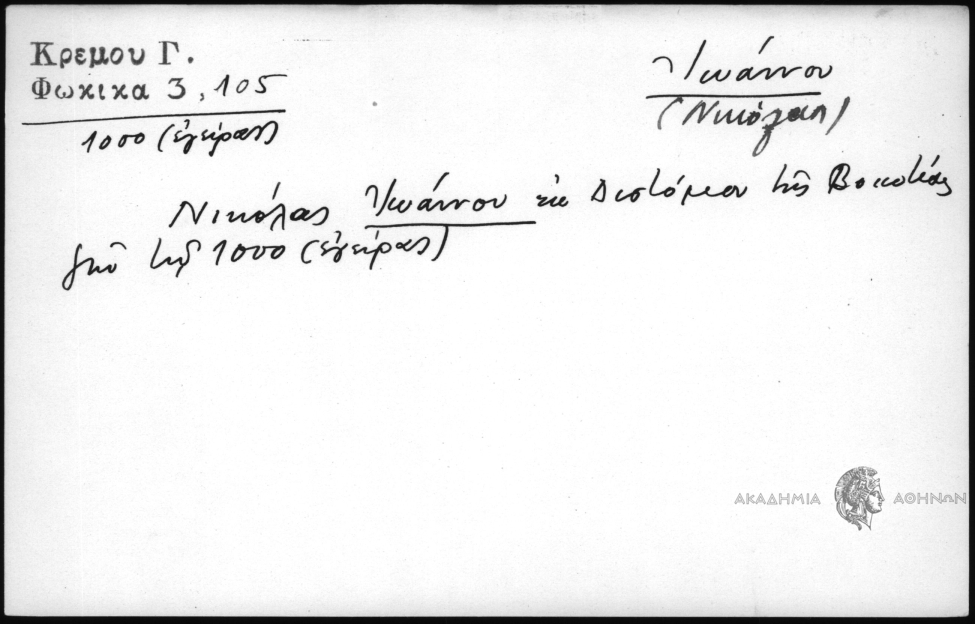 Κρεμου Γ.
Φωκικα 3, 105
1000 (ἐγείρας)
Ἰωάννου
(Νικόλας)
Νικόλας Ἰωάννου ἐκ Διστόμου τῆς Βοιωτίας
1000 (ἐγείρας)
ΑΚΑΔΗΜΙΑ ΑΘΗΝΩΝ